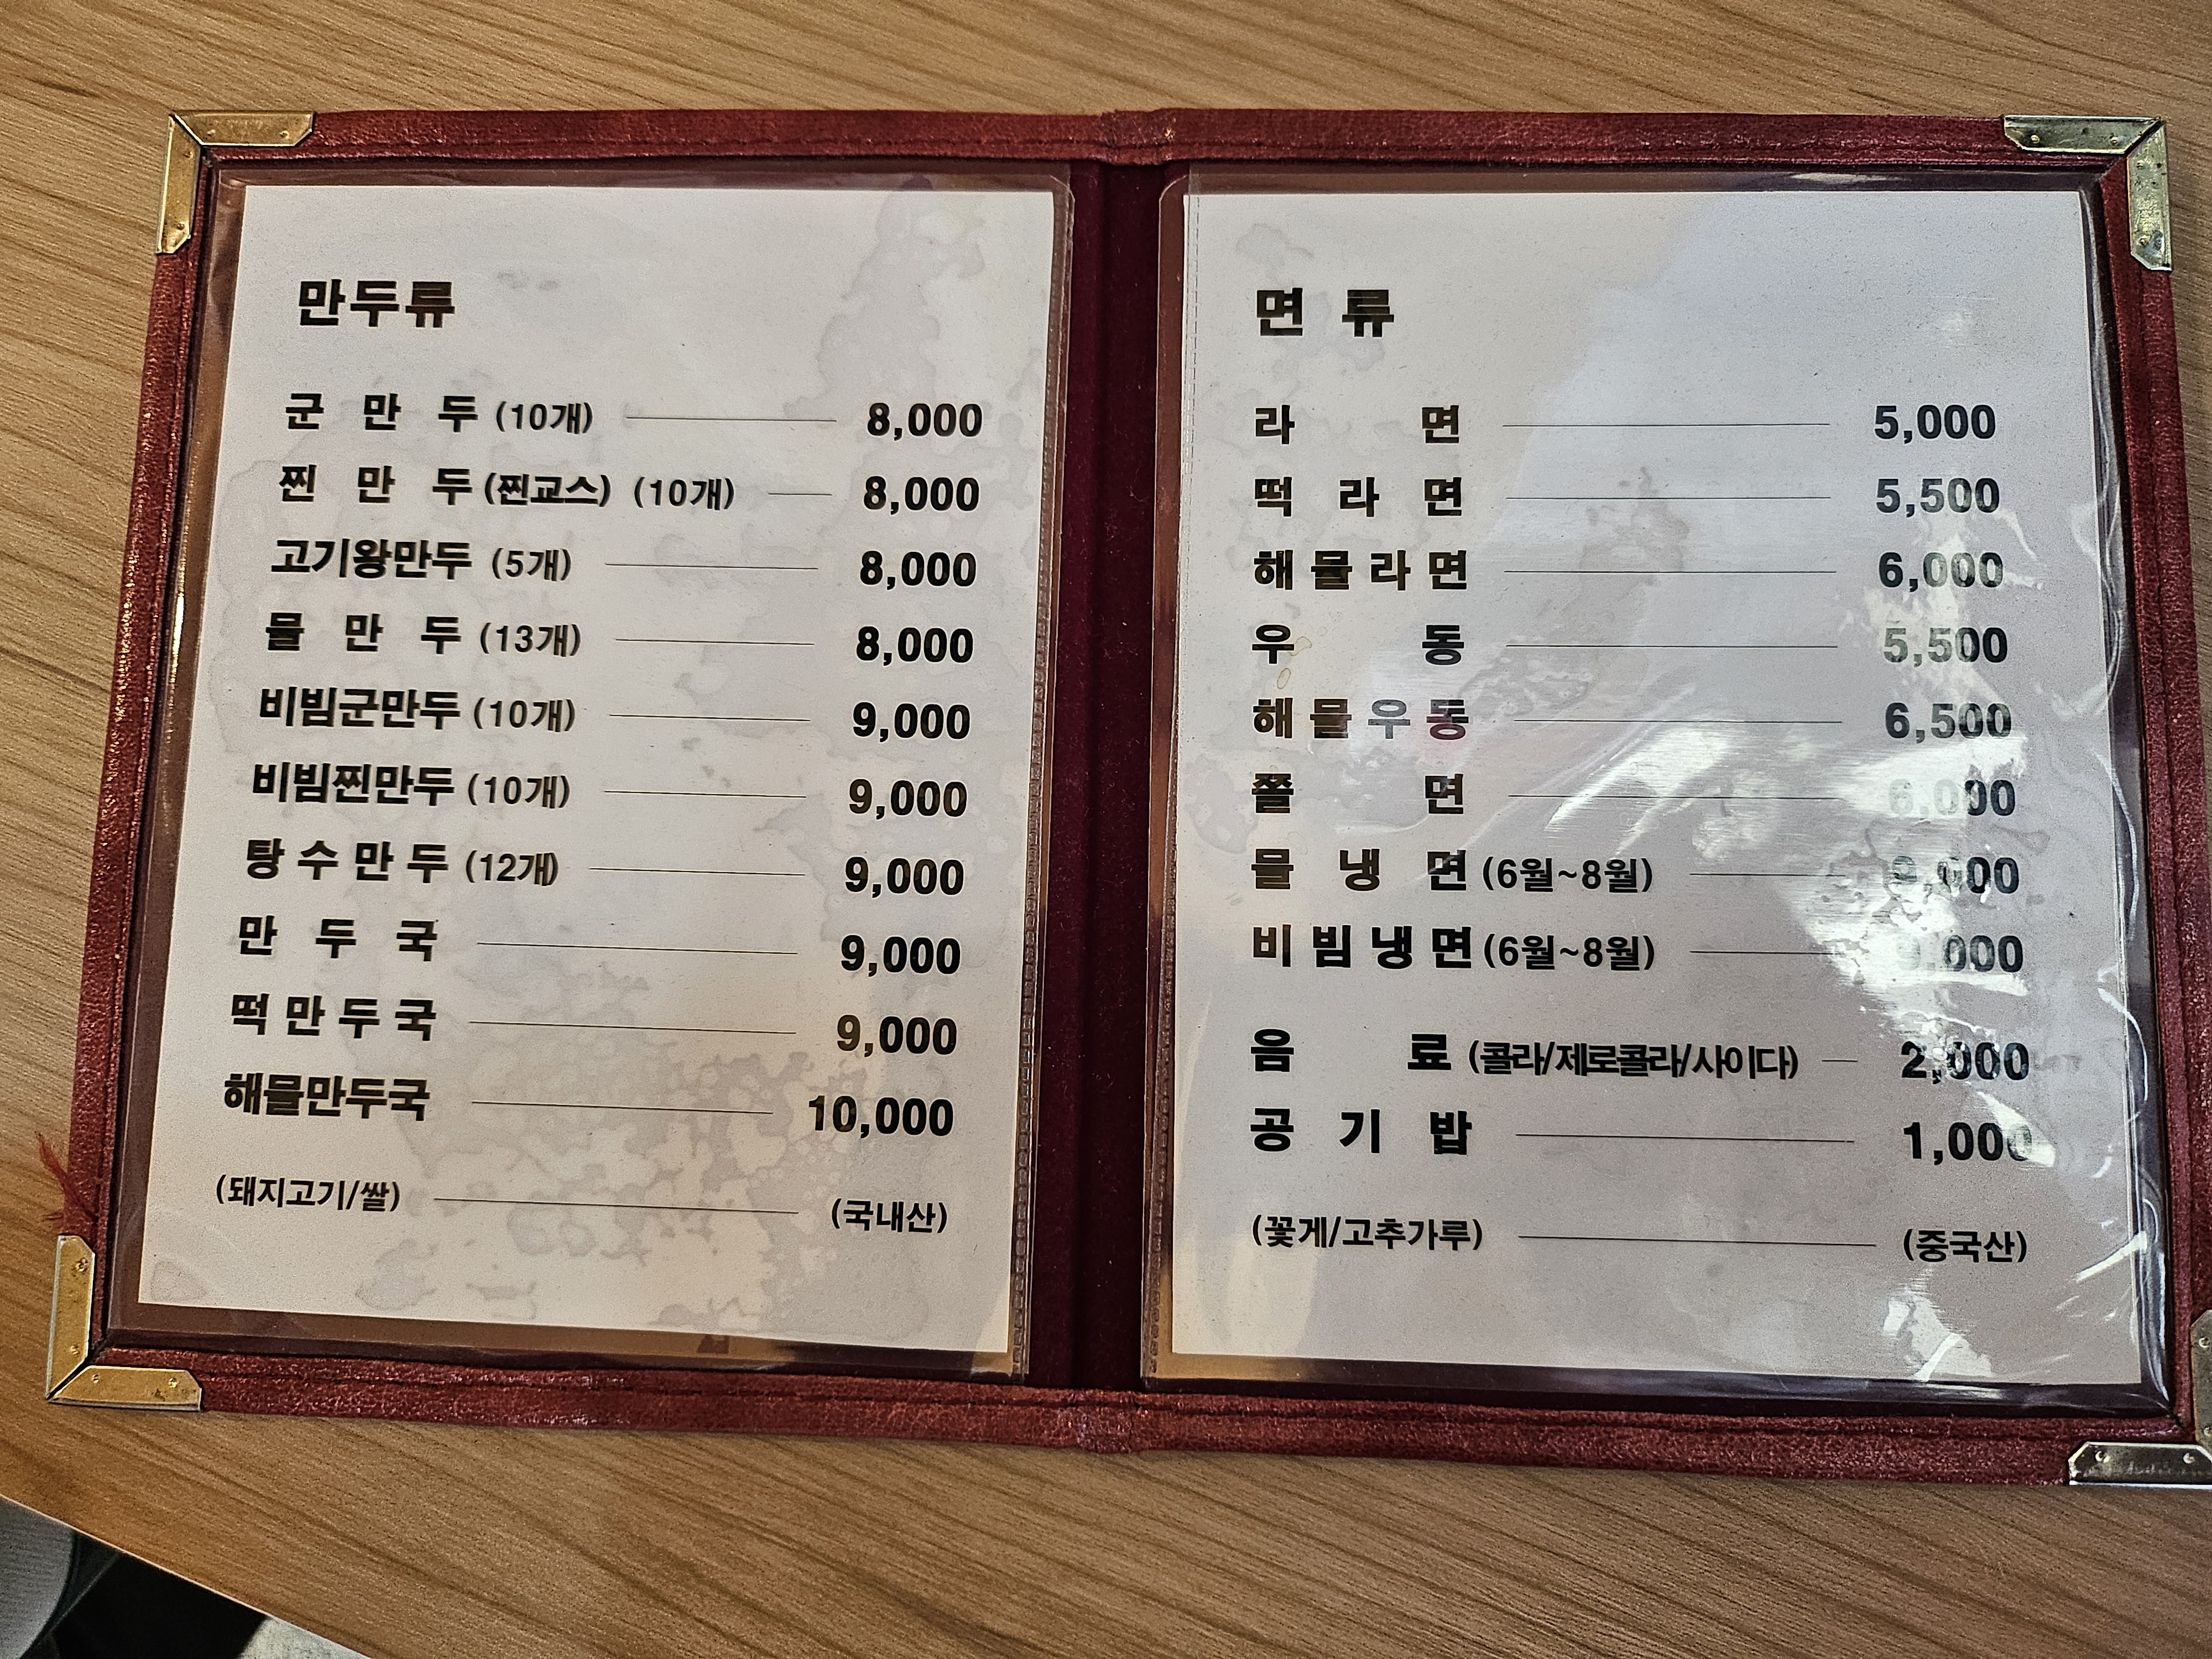 만두류
군 만 두 (10개) 8,000
찐 만 두 (찐교스) (10개) 8,000
고기왕만두 (5개) 8,000
물 만 두 (13개) 8,000
비빔군만두 (10개) 9,000
비빔찐만두 (10개) 9,000
탕 수 만 두 (12개) 9,000
만 두 국 9,000
떡 만 두 국 9,000
해물만두국 10,000
(돼지고기/쌀) (국내산)
면 류
라 면 5,000
떡 라 면 5,500
해 물 라 면 6,000
우 동 5,500
해 물 우 동 6,500
쫄 면 6,000
물 냉 면 (6월~8월)
비 빔 냉 면 (6월~8월)
음 료 (콜라/제로콜라/사이다) 2,000
공 기 밥 1,000
(꽃게/고추가루) (중국산)